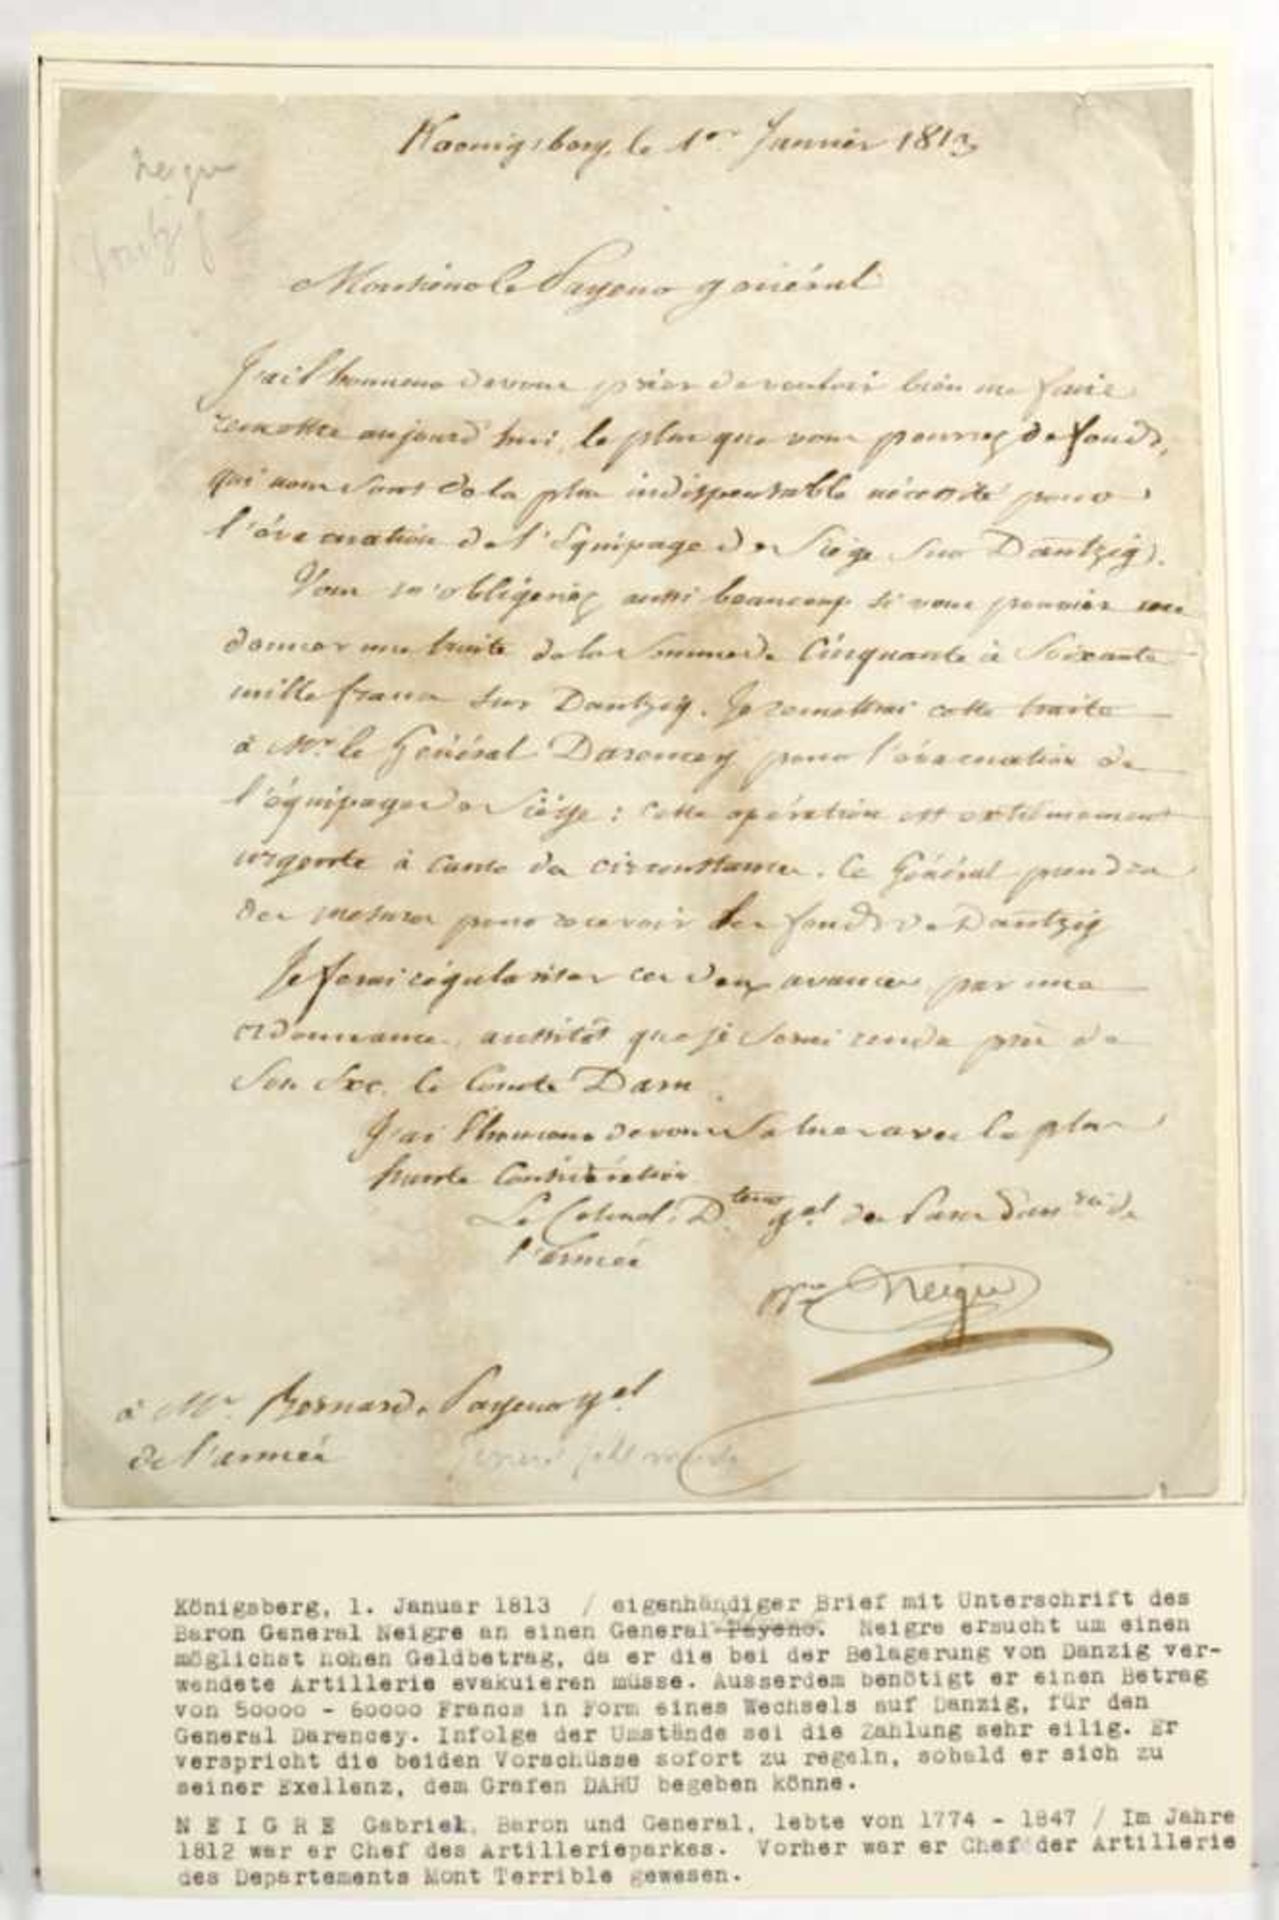 Koenigsberg, le 1er Janvier 1813
Neigre
Monsieur le Payeur général
J'ai l'honneur de vous prier de vouloir bien me faire
remettre aujourd'hui, le plus que vous pourrez de fonds,
qui nous sont de la plus indispensable nécessité pour
l'évacuation de l'Equipage de Siège sur Dantzig.
Vous m'obligeriez aussi beaucoup si vous pouviez me
donner une traite de la Somme de Cinquante à Soixante
mille francs sur Dantzig. Je remettrai cette traite
à Mr. le Général Darencey pour l'évacuation de
l'équipage de Siège : cette opération est extrêmement
urgente à cause des circonstances. Ce Général prendra
des mesures pour recevoir les fonds de Dantzig
Je ferai régulariser ces deux avances, par une
ordonnance, aussitôt que je serai rendu près de
Son Exc. le Comte Daru.
J'ai l'honneur de vous Saluer avec la plus
haute Considération
Le Colonel, Dteur gal des Parcs d'artrie de
l'armée
Neigre
à Mr. Bernard, Payeur gal
de l'armée
Königsberg, 1. Januar 1813 / eigenhändiger Brief mit Unterschrift des
Baron General Neigre an einen General-Payeno. Neigre ersucht um einen
möglichst hohen Geldbetrag, da er die bei der Belagerung von Danzig ver-
wendete Artillerie evakuieren müsse. Ausserdem benötigt er einen Betrag
von 50000 - 60000 Francs in Form eines Wechsels auf Danzig, für den
General Darencey. Infolge der Umstände sei die Zahlung sehr eilig. Er
verspricht die beiden Vorschüsse sofort zu regeln, sobald er sich zu
seiner Exellenz, dem Grafen DARU begeben könne.
N E I G R E Gabriel, Baron und General, lebte von 1774 - 1847 / Im Jahre
1812 war er Chef des Artillerieparkes. Vorher war er Chef der Artillerie
des Departements Mont Terrible gewesen.